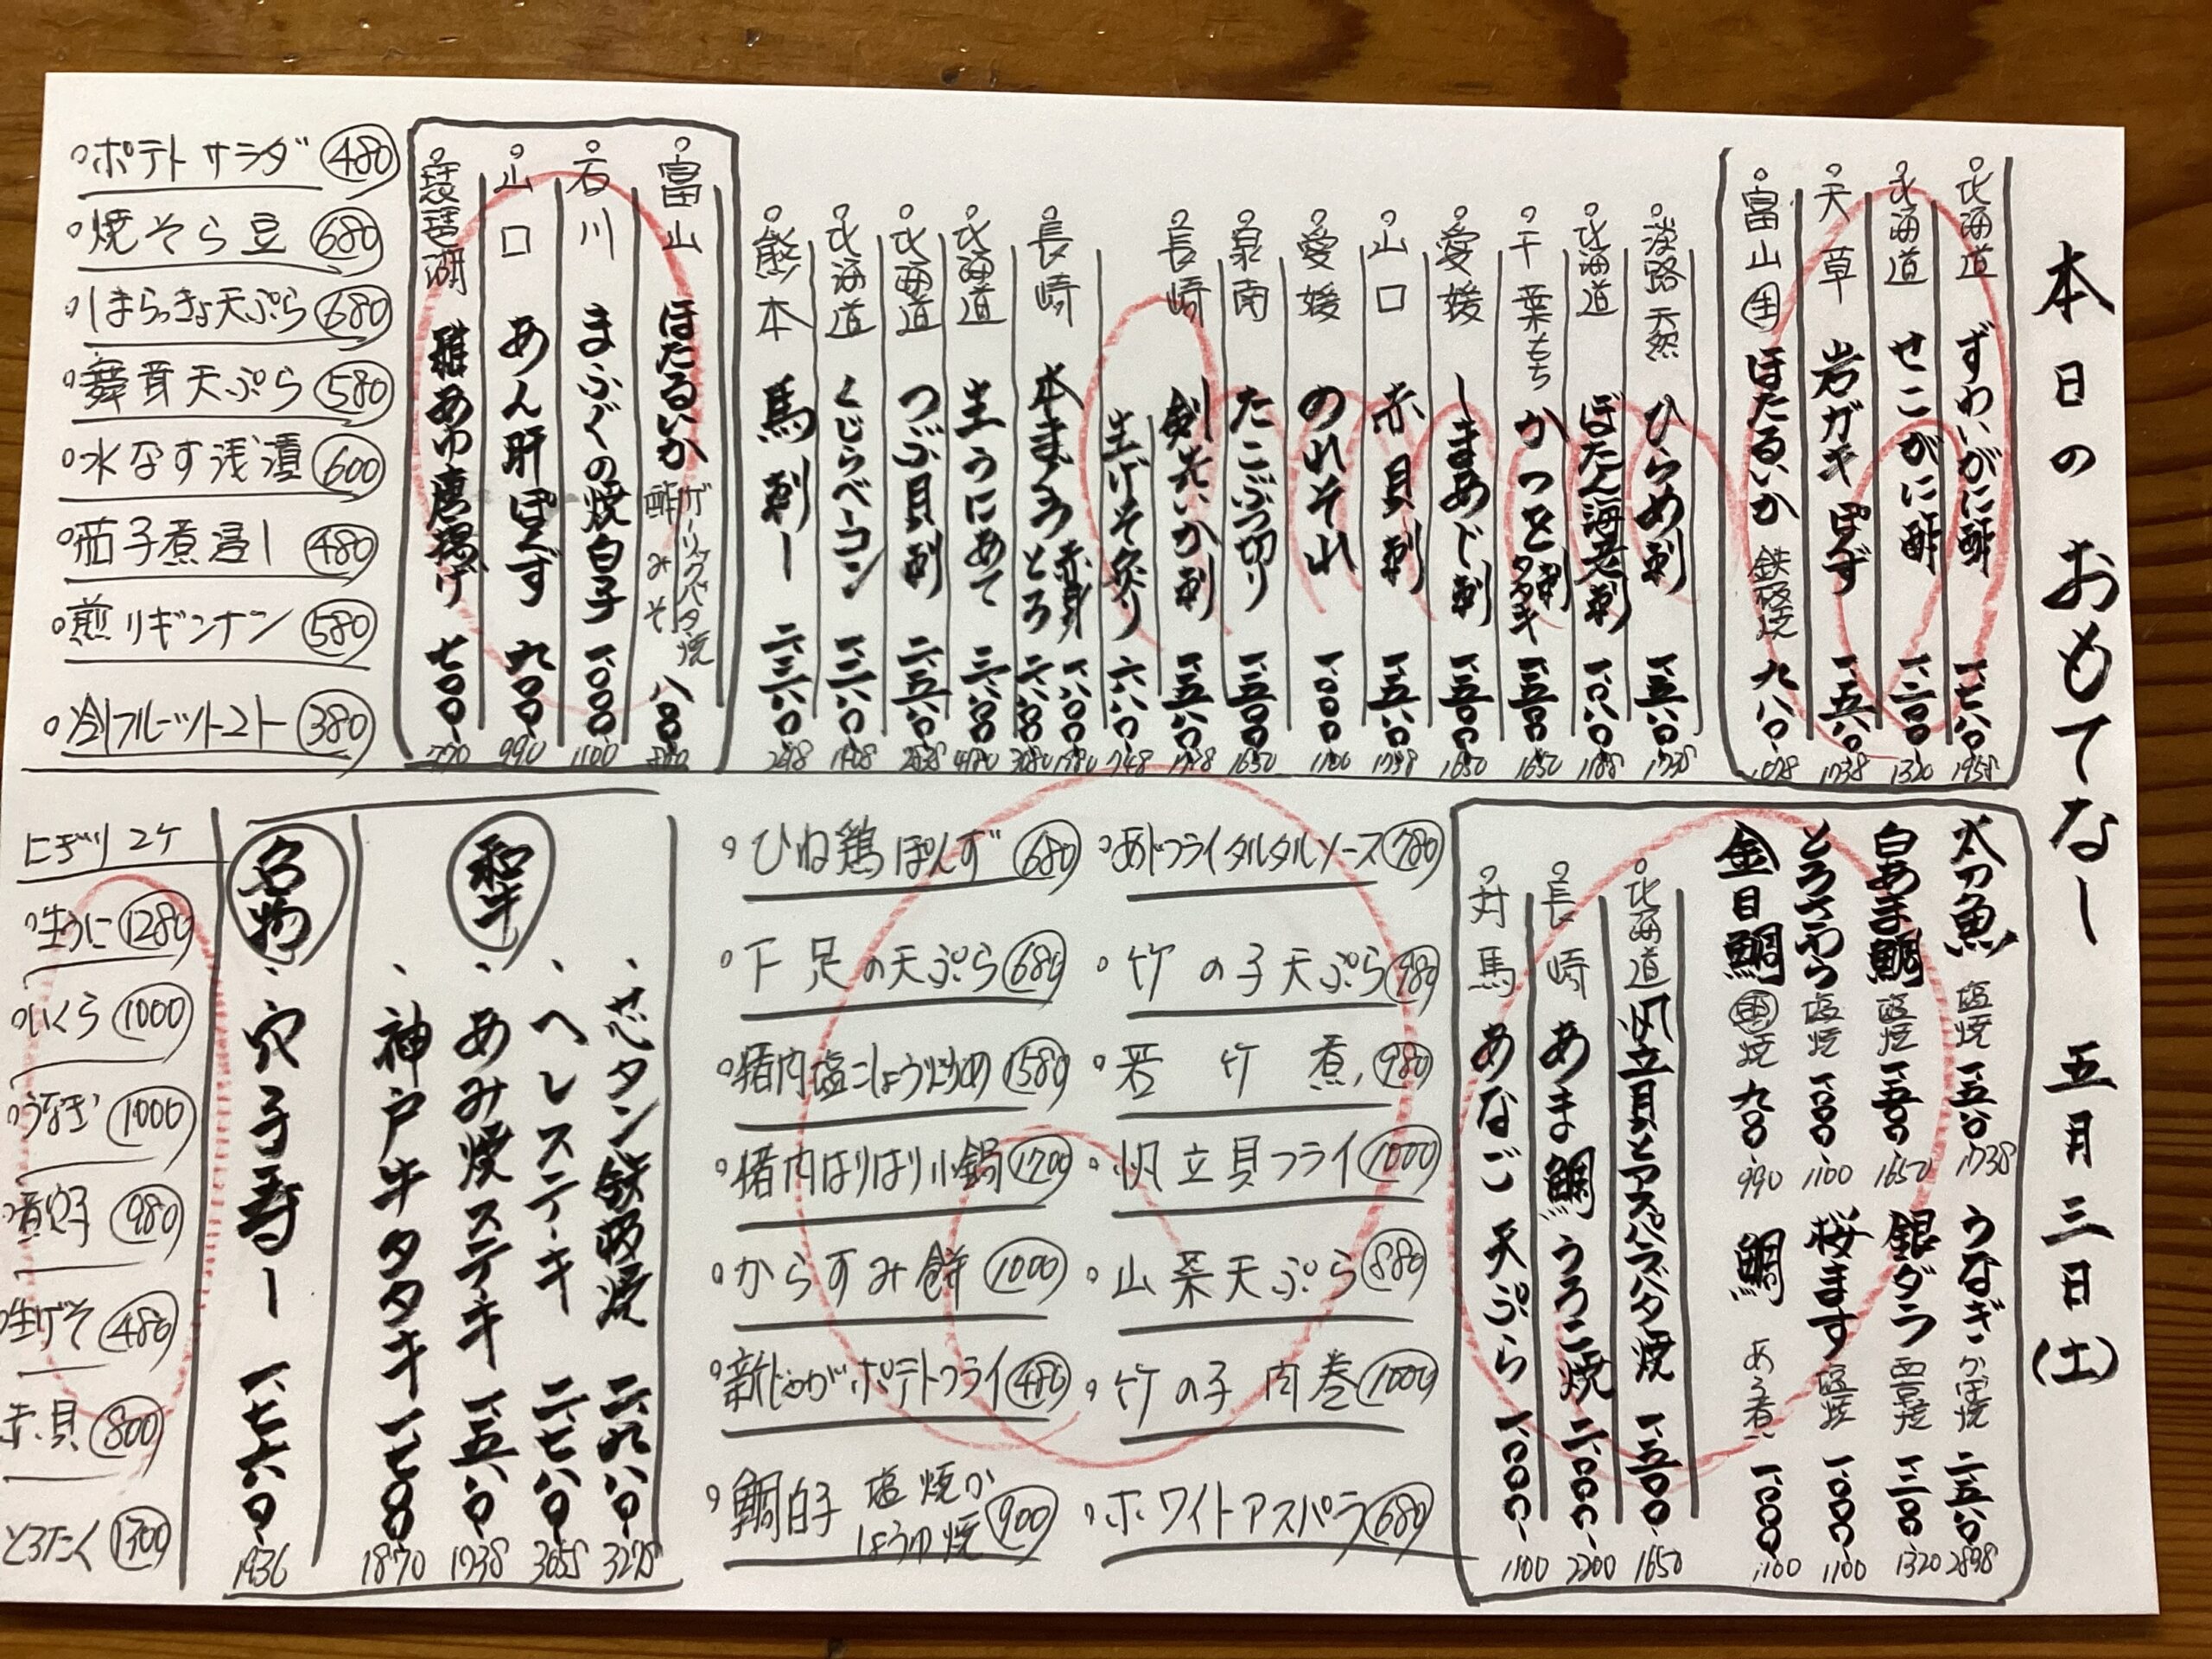 本日のおもてなし 五月三日(土)
北海道 ずわいがに酢 一、七八〇 1958
北海道 せこがに酢 一、二〇〇 1320
天草 岩ガキぽず 一、五八〇 1738
富山 生 ほたるいか 鉄板焼 九八〇 1078
淡路天然 ひらめ刺 一、五八〇 1738
北海道 ぼたん海老刺 一、〇八〇 1188
千葉もち かつを刺 タタキ 一、五〇〇 1650
愛媛 しまあじ刺 一、五〇〇 1650
山口 赤貝刺 一、五八〇 1738
愛媛 のれそれ 一、〇〇〇 1100
泉南 たこぶつ切り 一、五〇〇 1650
長崎 剣先いか刺 一、五八〇 1738
生げそ炙り 六八〇 748
長崎 本まぐろ 赤身 一、八〇〇 1980
とろ 二、八〇〇 3080
北海道 生うにあて 三、八〇〇 4180
北海道 つぶ貝刺 二、五八〇 2838
北海道 くじらベーコン
熊本 馬刺し
富山 ほたるいか ガーリックバター焼 酢みそ 八〇〇 880
石川 まふぐの焼白子 一、〇〇〇 1100
山口 あん肝ぽんず 九〇〇 990
琵琶湖 稚あゆ唐揚げ 七〇〇 770
ポテトサラダ 480
焼そら豆 680
しまらっきょ天ぷら 680
舞茸天ぷら 580
水なす浅漬 600
茄子煮浸し 480
煎りギンナン 580
冷しフルーツトマト 380
太刀魚 塩焼 一、五八〇 1738
白あま鯛 塩焼 一、五〇〇 1650
とろさわら 塩焼 一、〇〇〇 1100
金目鯛 西焼 九〇〇 990
うなぎ かば焼 二、五八〇 2838
銀ダラ 西京焼 一、二〇〇 1320
桜ます 塩焼 一、〇〇〇 1100
鯛 あら煮 一、〇〇〇 1100
北海道 帆立貝とアスパラバタ焼 一、五〇〇 1650
長崎 あま鯛うろこ焼 二、〇〇〇 2200
対馬 あなご天ぷら 一、〇〇〇 1100
あじフライタルタルソース 780
竹の子天ぷら 980
若竹煮 980
帆立貝フライ 1000
山菜天ぷら 880
竹の子肉巻 1000
ホワイトアスパラ 680
ひね鶏ぽんず 680
下足の天ぷら 680
猪肉塩こしょう炒め 1580
猪肉はりはり小鍋 1700
からすみ餅 1000
新じゃがポテトフライ 480
鯛白子 塩焼か しょうゆ焼 900
和牛
タン鉄板焼 二、九八〇 3278
ヘレステーキ 二、七八〇 3058
あみ焼ステーキ 一、五八〇 1738
神戸牛タタキ 一、七〇〇 1870
名物
穴子寿し 一、七六〇 1936
にぎり 2ケ
生うに 1280
いくら 1000
うなぎ 1000
煮穴子 980
生げそ 480
赤貝 800
とろたく 1300